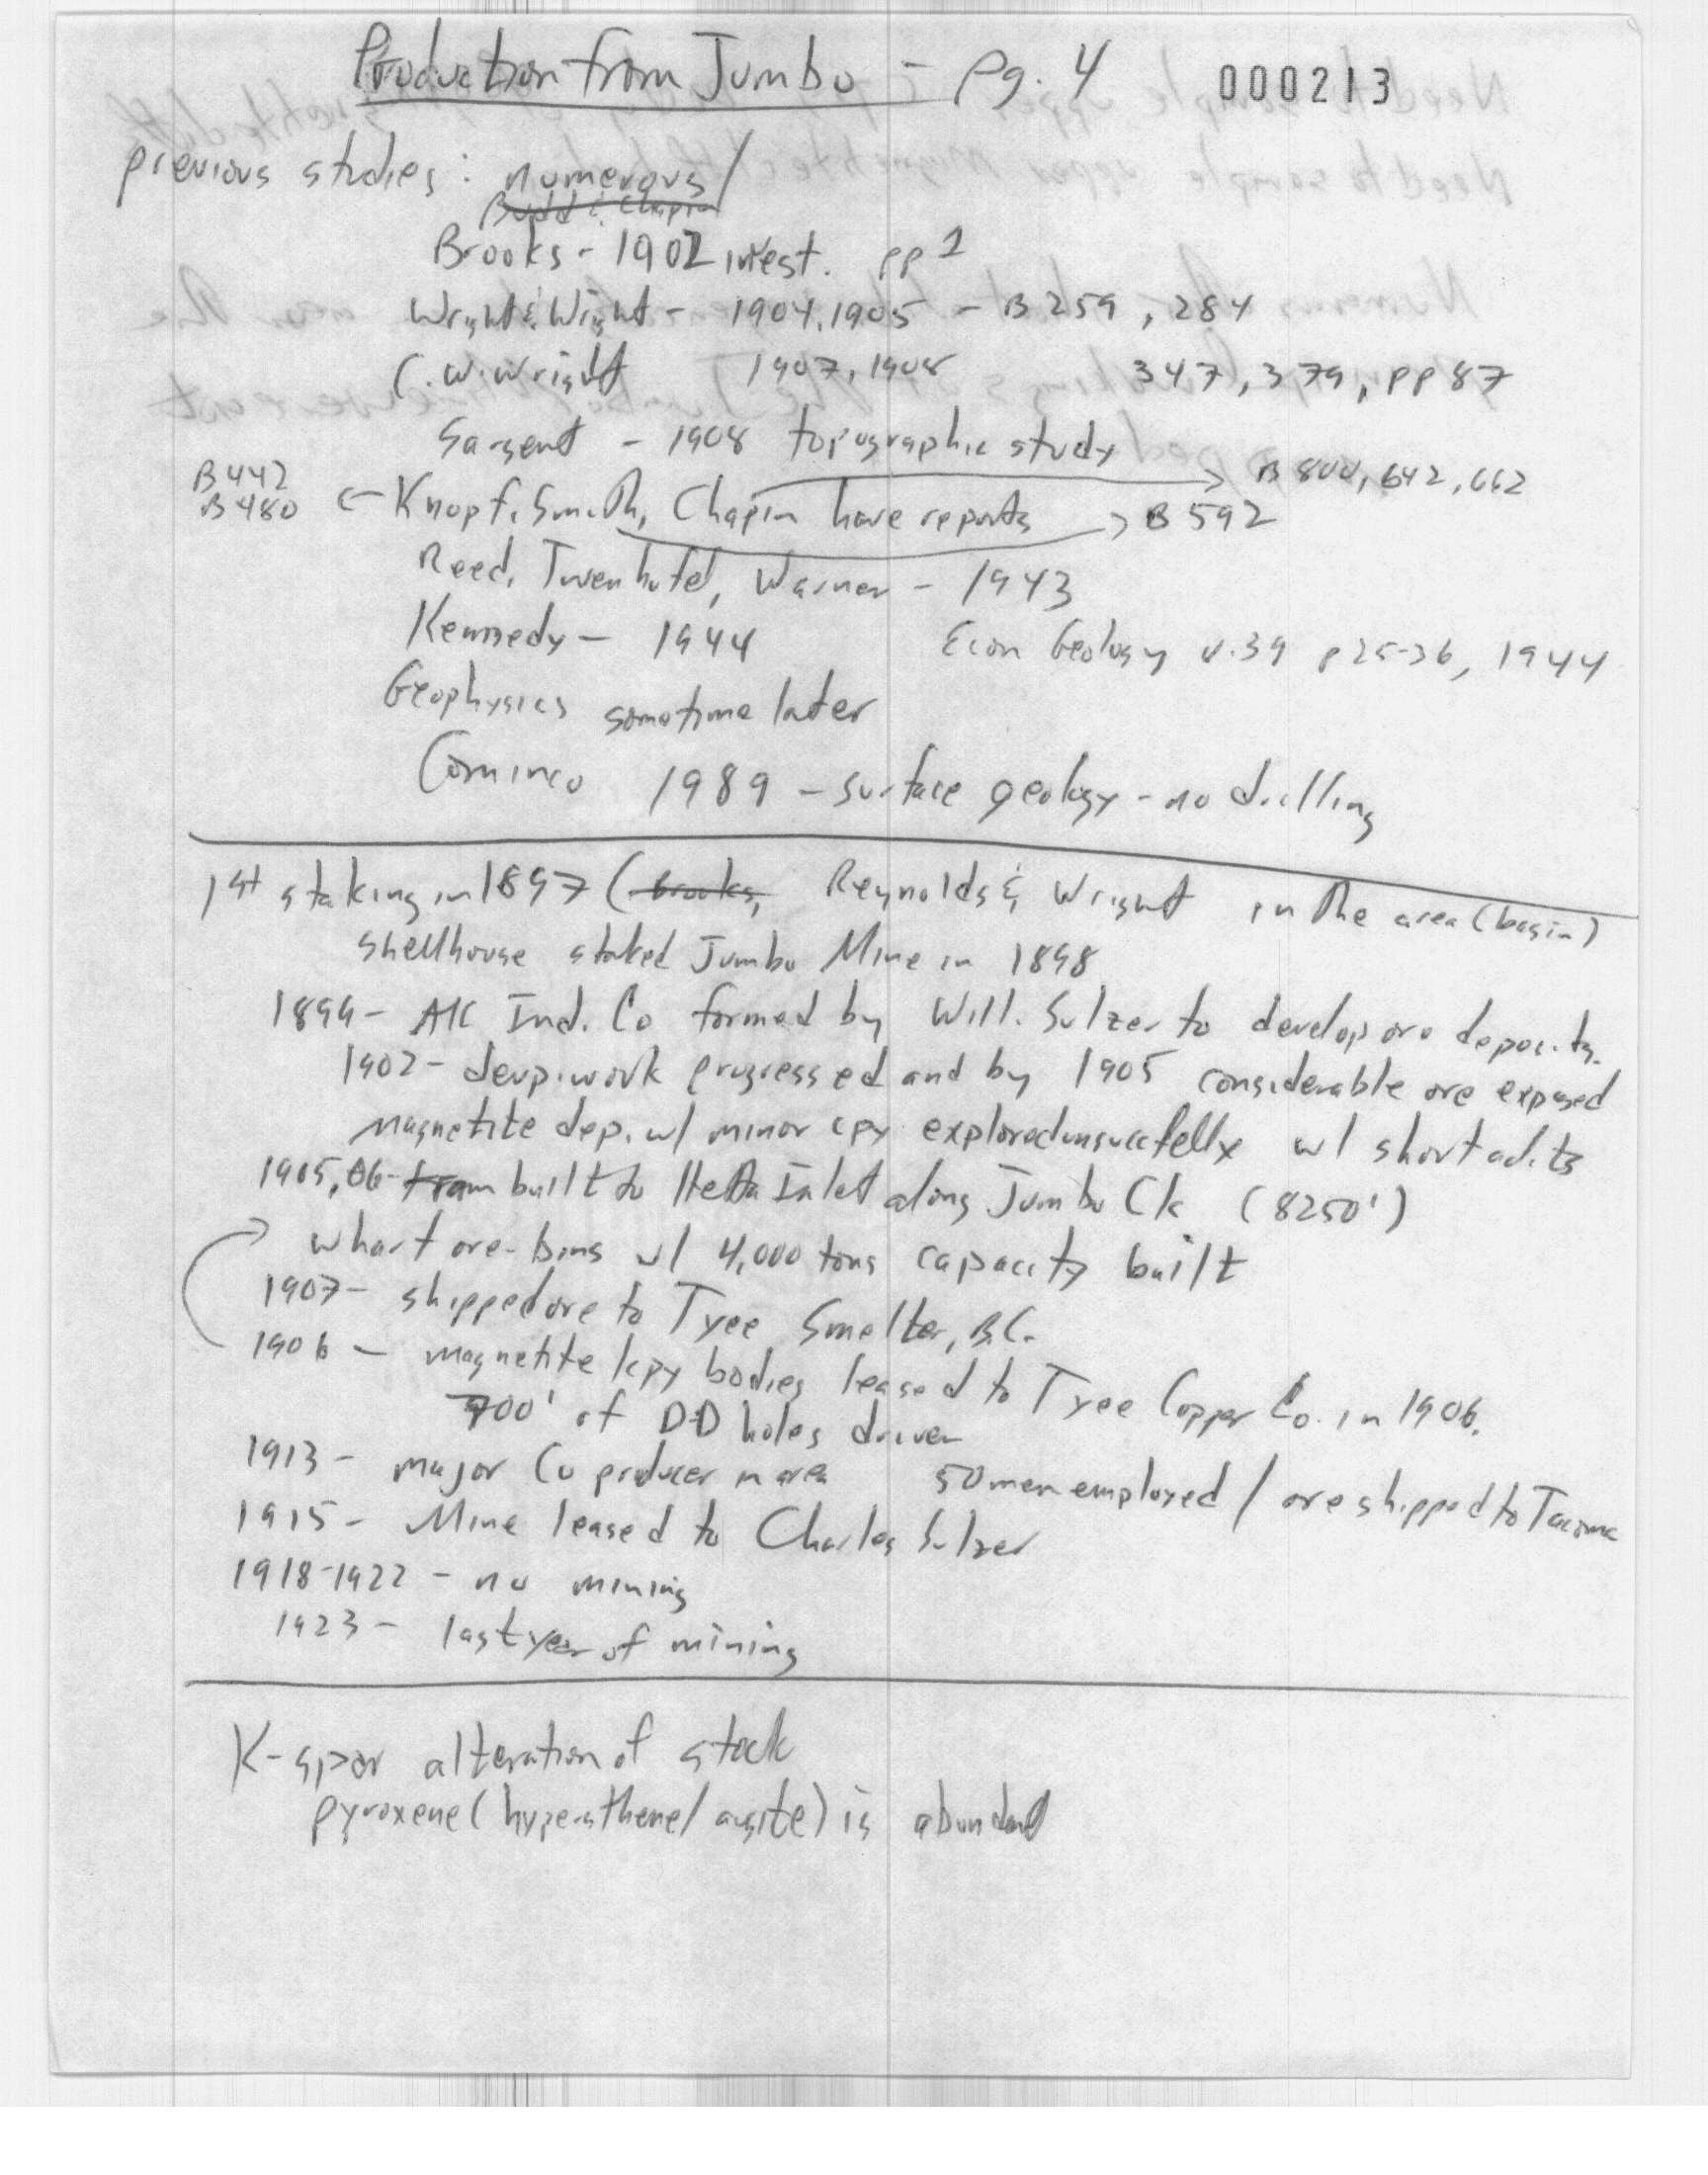 Production from Jumbo - pg. 4 000213
previous studies: numerous/
Budd & Chapin
Brooks - 1902 invest. pp 1
Wright & Wright - 1904, 1905 - B 259, 284
C.W. Wright 1907, 1908 347, 379, pp 87
Sargent - 1908 topographic study
B 442
B 480 ← Knopf, Smith, Chapin have reports → B 592
→ B 800, 642, 662
Reed, Twenhofel, Warner - 1943
Kennedy - 1944 Econ Geology v.39 p 25-36, 1944
Geophysics sometime later
Cominco 1989 - surface geology - no drilling
1st staking in 1897 (Brooks, Reynolds & Wright in the area (basin)
Shellhouse staked Jumbo Mine in 1898
1899 - AK Ind. Co formed by Will. Sulzer to develop ore deposits.
1902 - devp. work progressed and by 1905 considerable ore exposed
magnetite dep. w/ minor cpy explored w/ short adits
1905, 06 - tram built to Hetta Inlet along Jumbo Ck (8250')
wharf ore-bins w/ 4,000 tons capacity built
1907 - shipped ore to Tyee Smelter, B.C.
1906 - magnetite/cpy bodies leased to Tyee Copper Co. in 1906.
700' of DD holes driven
1913 - major Cu producer in area 50 men employed / ore shipped to Tacoma
1915 - Mine leased to Charles Sulzer
1918-1922 - no mining
1923 - last year of mining
K-spar alteration of stock
pyroxene (hypersthene/augite) is abundant